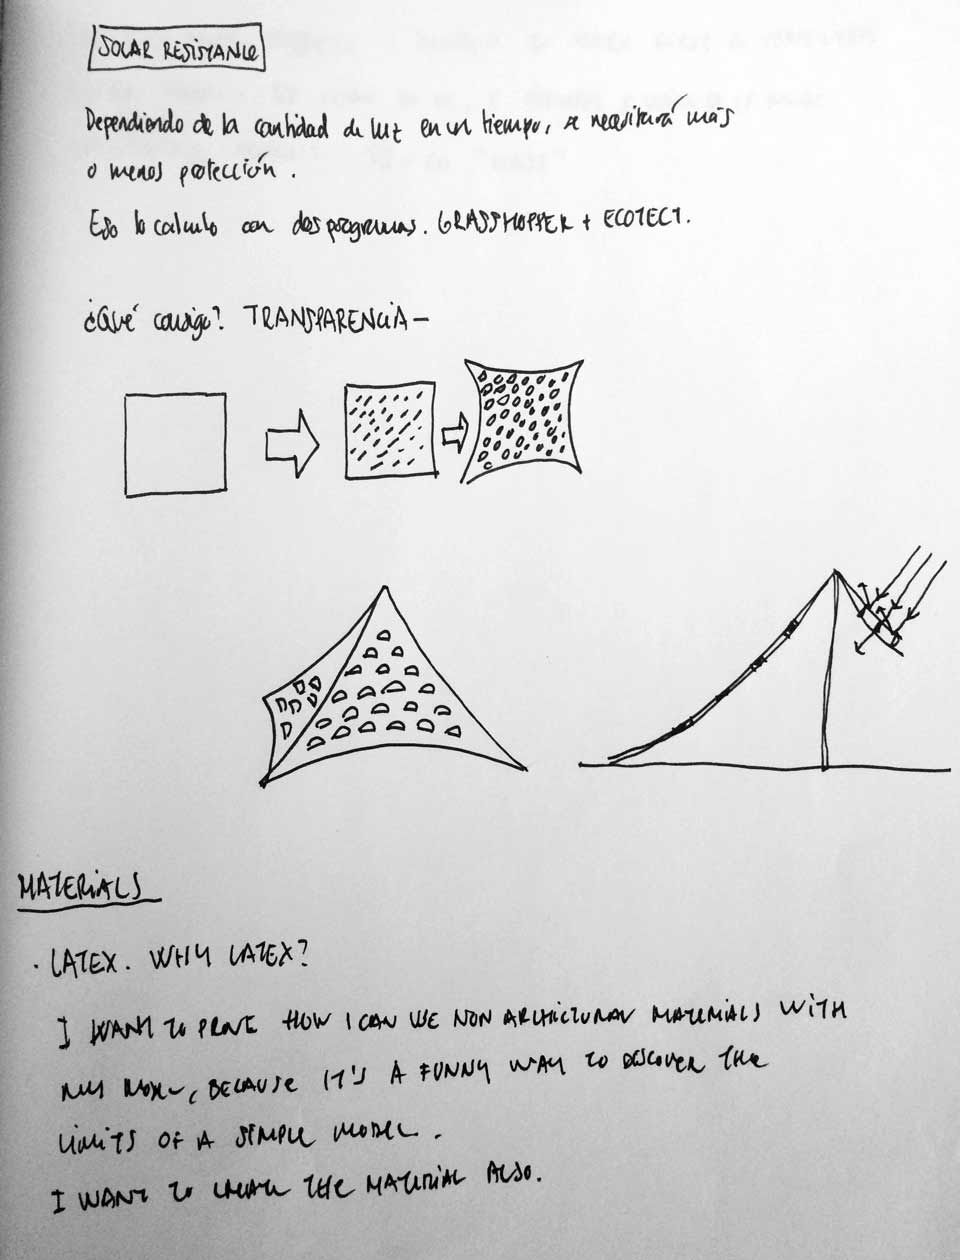 SOLAR RESISTANCE
Dependiendo de la cantidad de luz en un tiempo, se necesitará más
o menos protección.
Eso lo calculo con dos programas. GRASSHOPPER + ECOTECT.
¿Qué consigo? TRANSPARENCIA -
MATERIALS
· LATEX. WHY LATEX?
I WANT TO PROVE HOW I CAN USE NON ARCHICTURAL MATERIALS WITH
MY , BECAUSE IT'S A FUNNY WAY TO DISCOVER THE
LIMITS OF A SIMPLE MODEL.
I WANT TO CREATE THE MATERIAL ALSO.